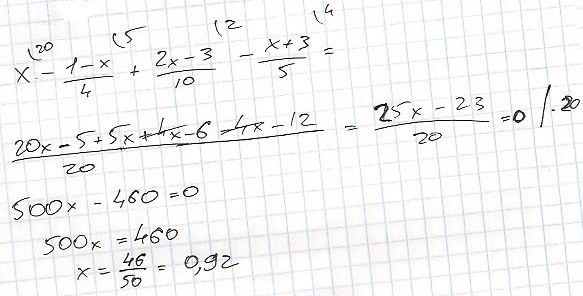 x⁽²⁰ - (1-x)/4⁽⁵ + (2x-3)/10⁽² - (x+3)/5⁽⁴ =
(20x-5+5x+4x-6-4x-12)/20 = (25x-23)/20 = 0 /·20
500x - 460 = 0
500x = 460
x = 46/50 = 0,92